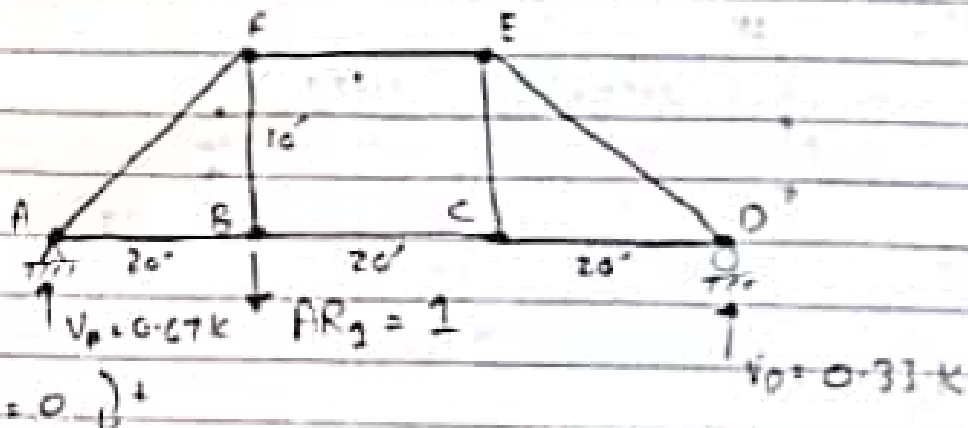 F E
10'
A B C D
20' 20' 20'
V_A = 0.67 K AR_1 = 1
V_D = 0.33 K
= 0 )+